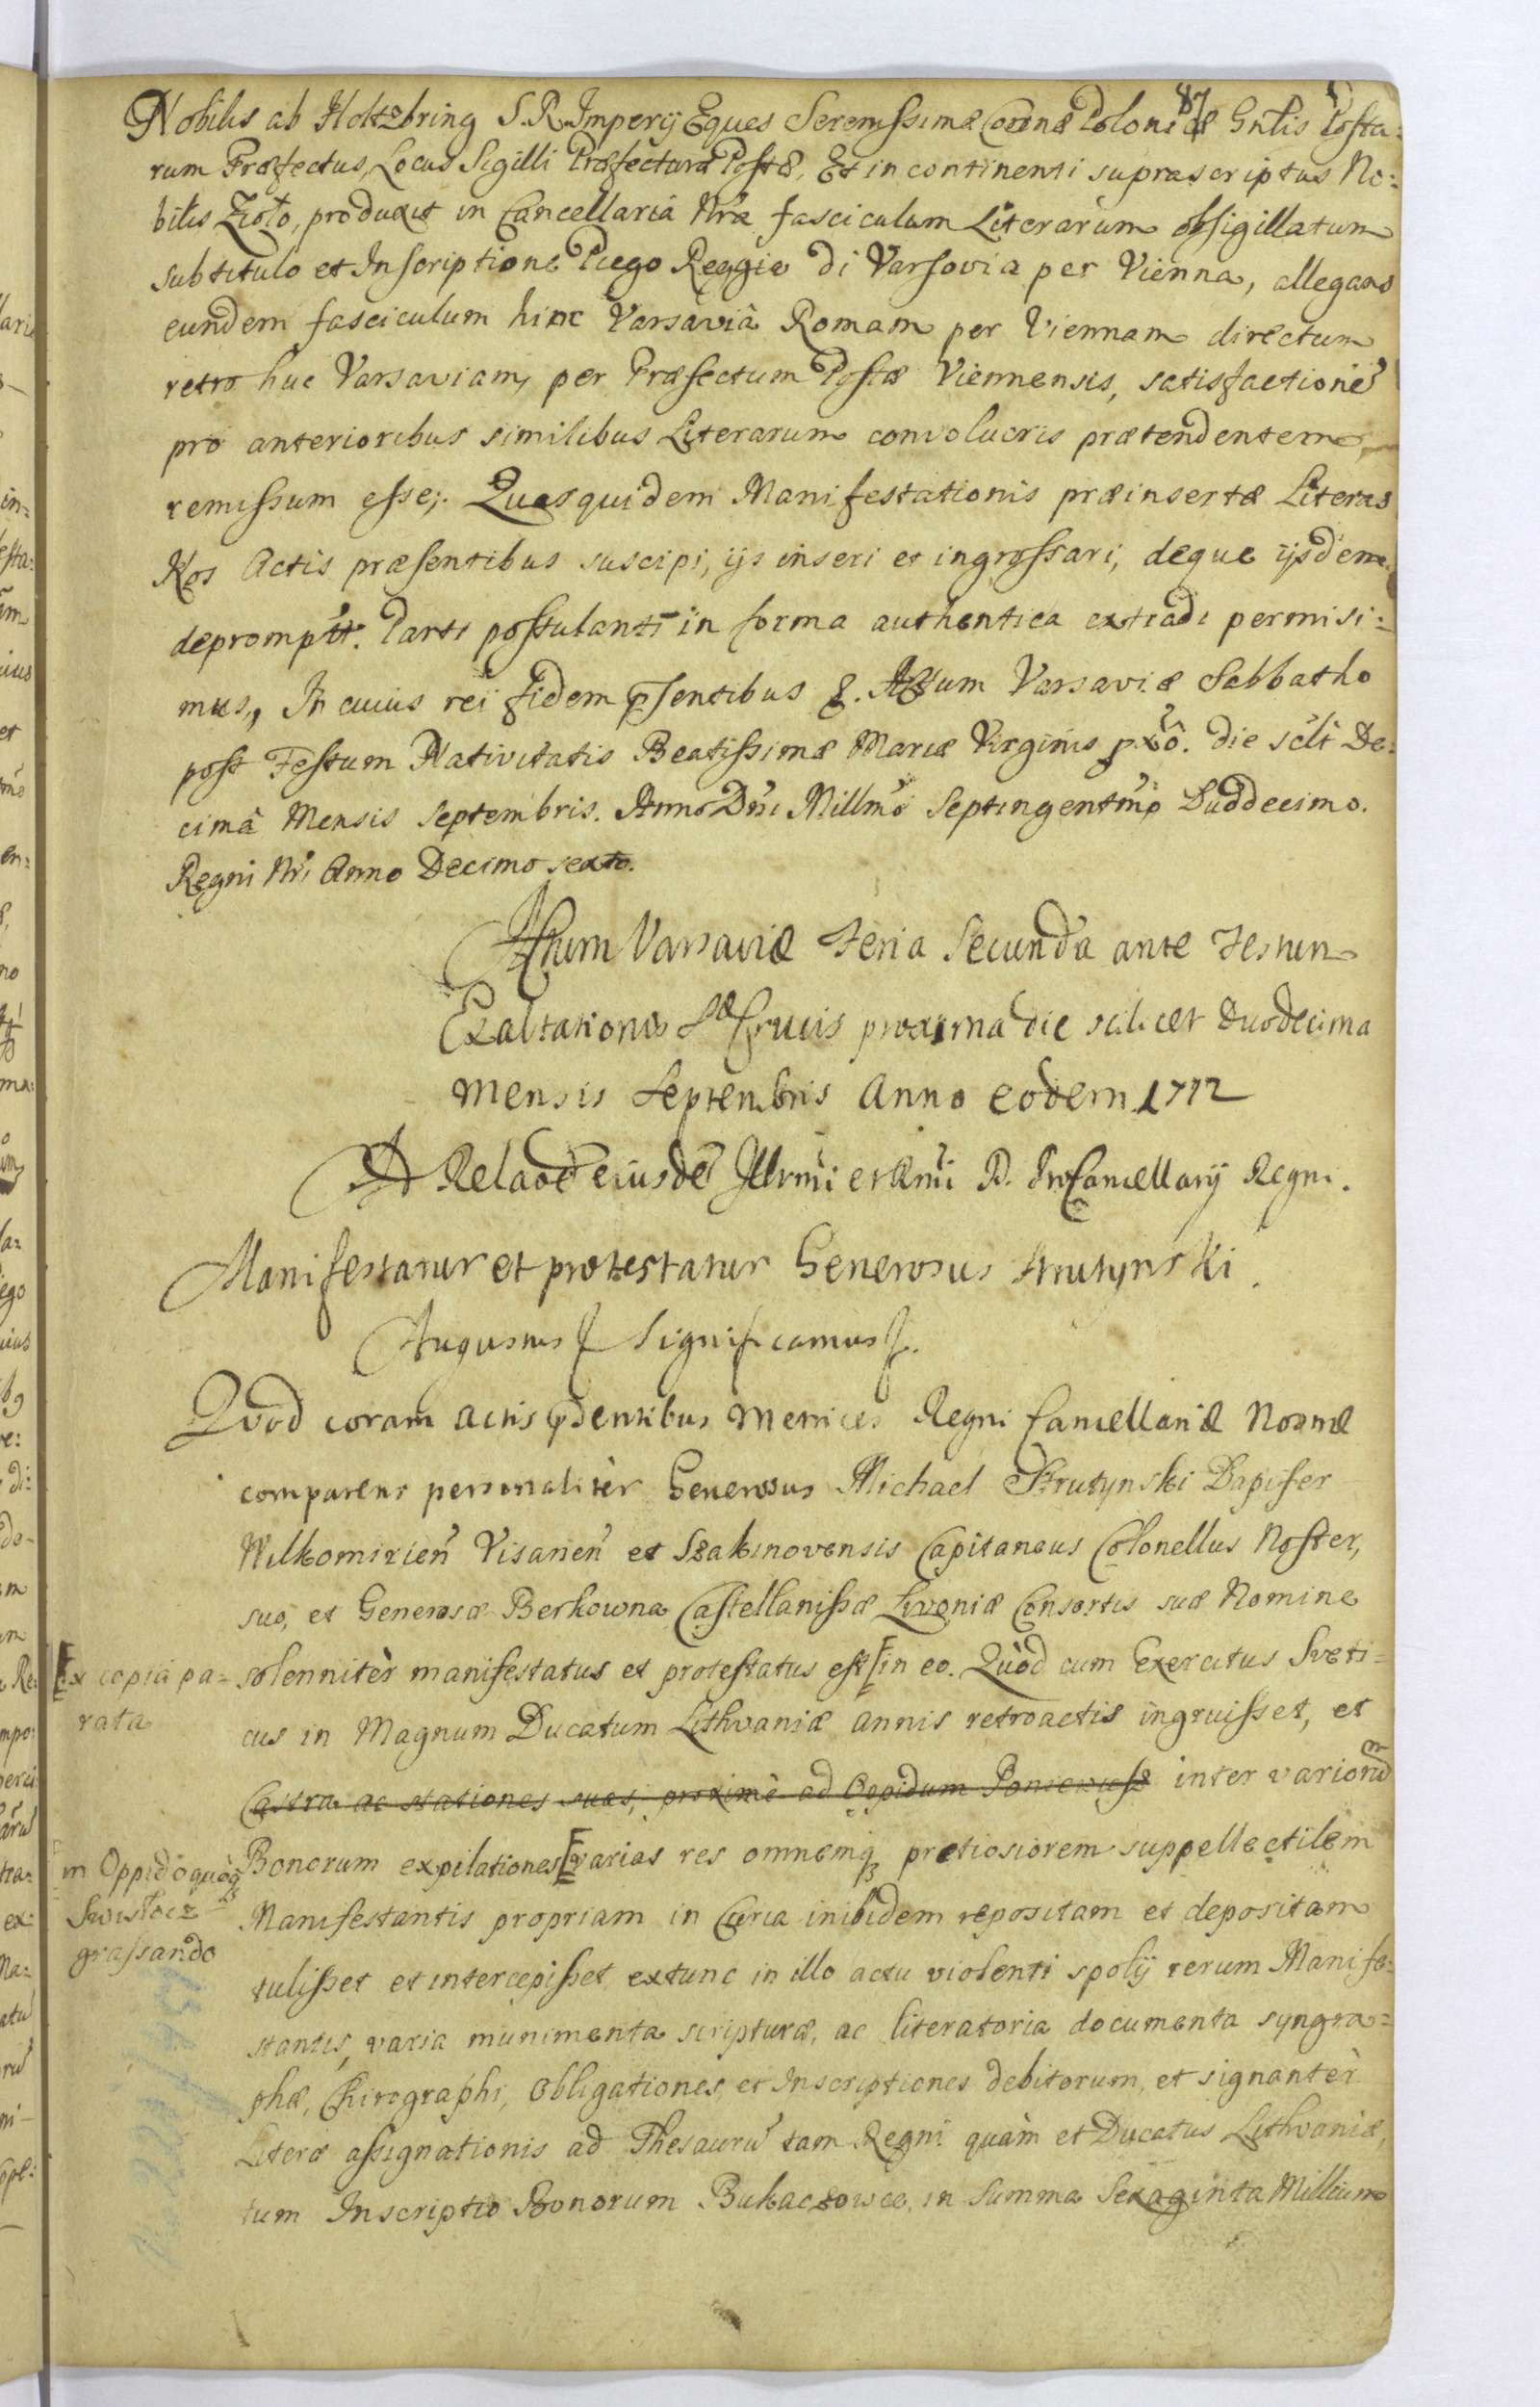 87
Nobilis ab Holtzbring S. R. Imperij Eques Serenissimæ Coronæ Polonicæ Gnlis Posta:
rum Præfectus, Locus Sigilli Præfecturæ Postæ, Et in continenti suprascriptus No:
bilis Zioło, produxit in Cancellariâ Nrã fasciculum Literarum obsigillatum
subtitulo et Inscriptione Piego Reggio di Varsovia per Vienna, allegans
eundem fasciculum hinc Varsaviâ Romam per Viennam directum
retro huc Varsaviam, per Præfectum Postæ Viennensis, satisfactionẽ
pro anterioribus similibus Literarum convolucris prætendentem,
remissum esse;. Quas quidem Manifestationis præinsertæ Literas
Nos Actis præsentibus suscipi, ijs inseri et ingrossari, deque ijsdem
deprompt̃. Parti postulanti in forma authentica extradi permisi:
mus, In cuius rei fidem pñsentibus &. Actum Varsaviæ Sabbatho
post Festum Nativitatis Beatissimæ Mariæ Virginis pxõ. die sclt De:
cimâ Mensis Septembris. Anno Dni Millmõ Septingentmõ Duodecimo.
Regni Nri Anno Decimo sexto.
Actum Varsaviæ Feria Secunda ante Festum
Exaltationis Sæ Crucis proxima die scilicet duodecima
Mensis Septembris Anno eodem 1712
Ad Relaõẽ eiusdẽ Illrmi et Rmi D. ProCancellarij Regni.
Manifestatur et protestatur Generosus Strutynski.
Augustus & significamus &.
Quod coram actis pñdentibus Metrices Regni Cancellariæ Nostræ
comparens personalitèr Generosus Michael Strutynski Dapifer
Wilkomirien̄ Visanien̄ et Szakinovensis Capitaneus Colonellus Noster,
suo, et Generosæ Berkowna Castellanissæ Livoniæ Consortis suæ Nomine
Ex copia pa=
rata
solennitèr manifestatus et protestatus est [in eo. Quòd cum Exercitus Sveti=
cus in Magnum Ducatum Lithvaniæ annis retroactis ingruisset, et
Castra ac stationes suas, proximè ad Oppidum Poniewiesz inter varioru̅
in Oppido quoq;
Swisłocz
grassando
Bonorum expilationes [varias res omnemq; pretiosiorem suppellectilem
Manifestantis propriam in Curia inibidem repositam et depositam
tulisset et intercepisset extunc in illo actu violenti spolij rerum Manife=
stantis, varia munimenta scripturæ, ac literatoria documenta syngra=
phæ, Chirographi, Obligationes et Inscriptiones debitorum, et signantèr
Literæ assignationis ad Thesauru̅ tam Regni quàm et Ducatus Lithvaniæ,
tum Inscriptio Bonorum Bukaczowce, in Summa Sexaginta Millium